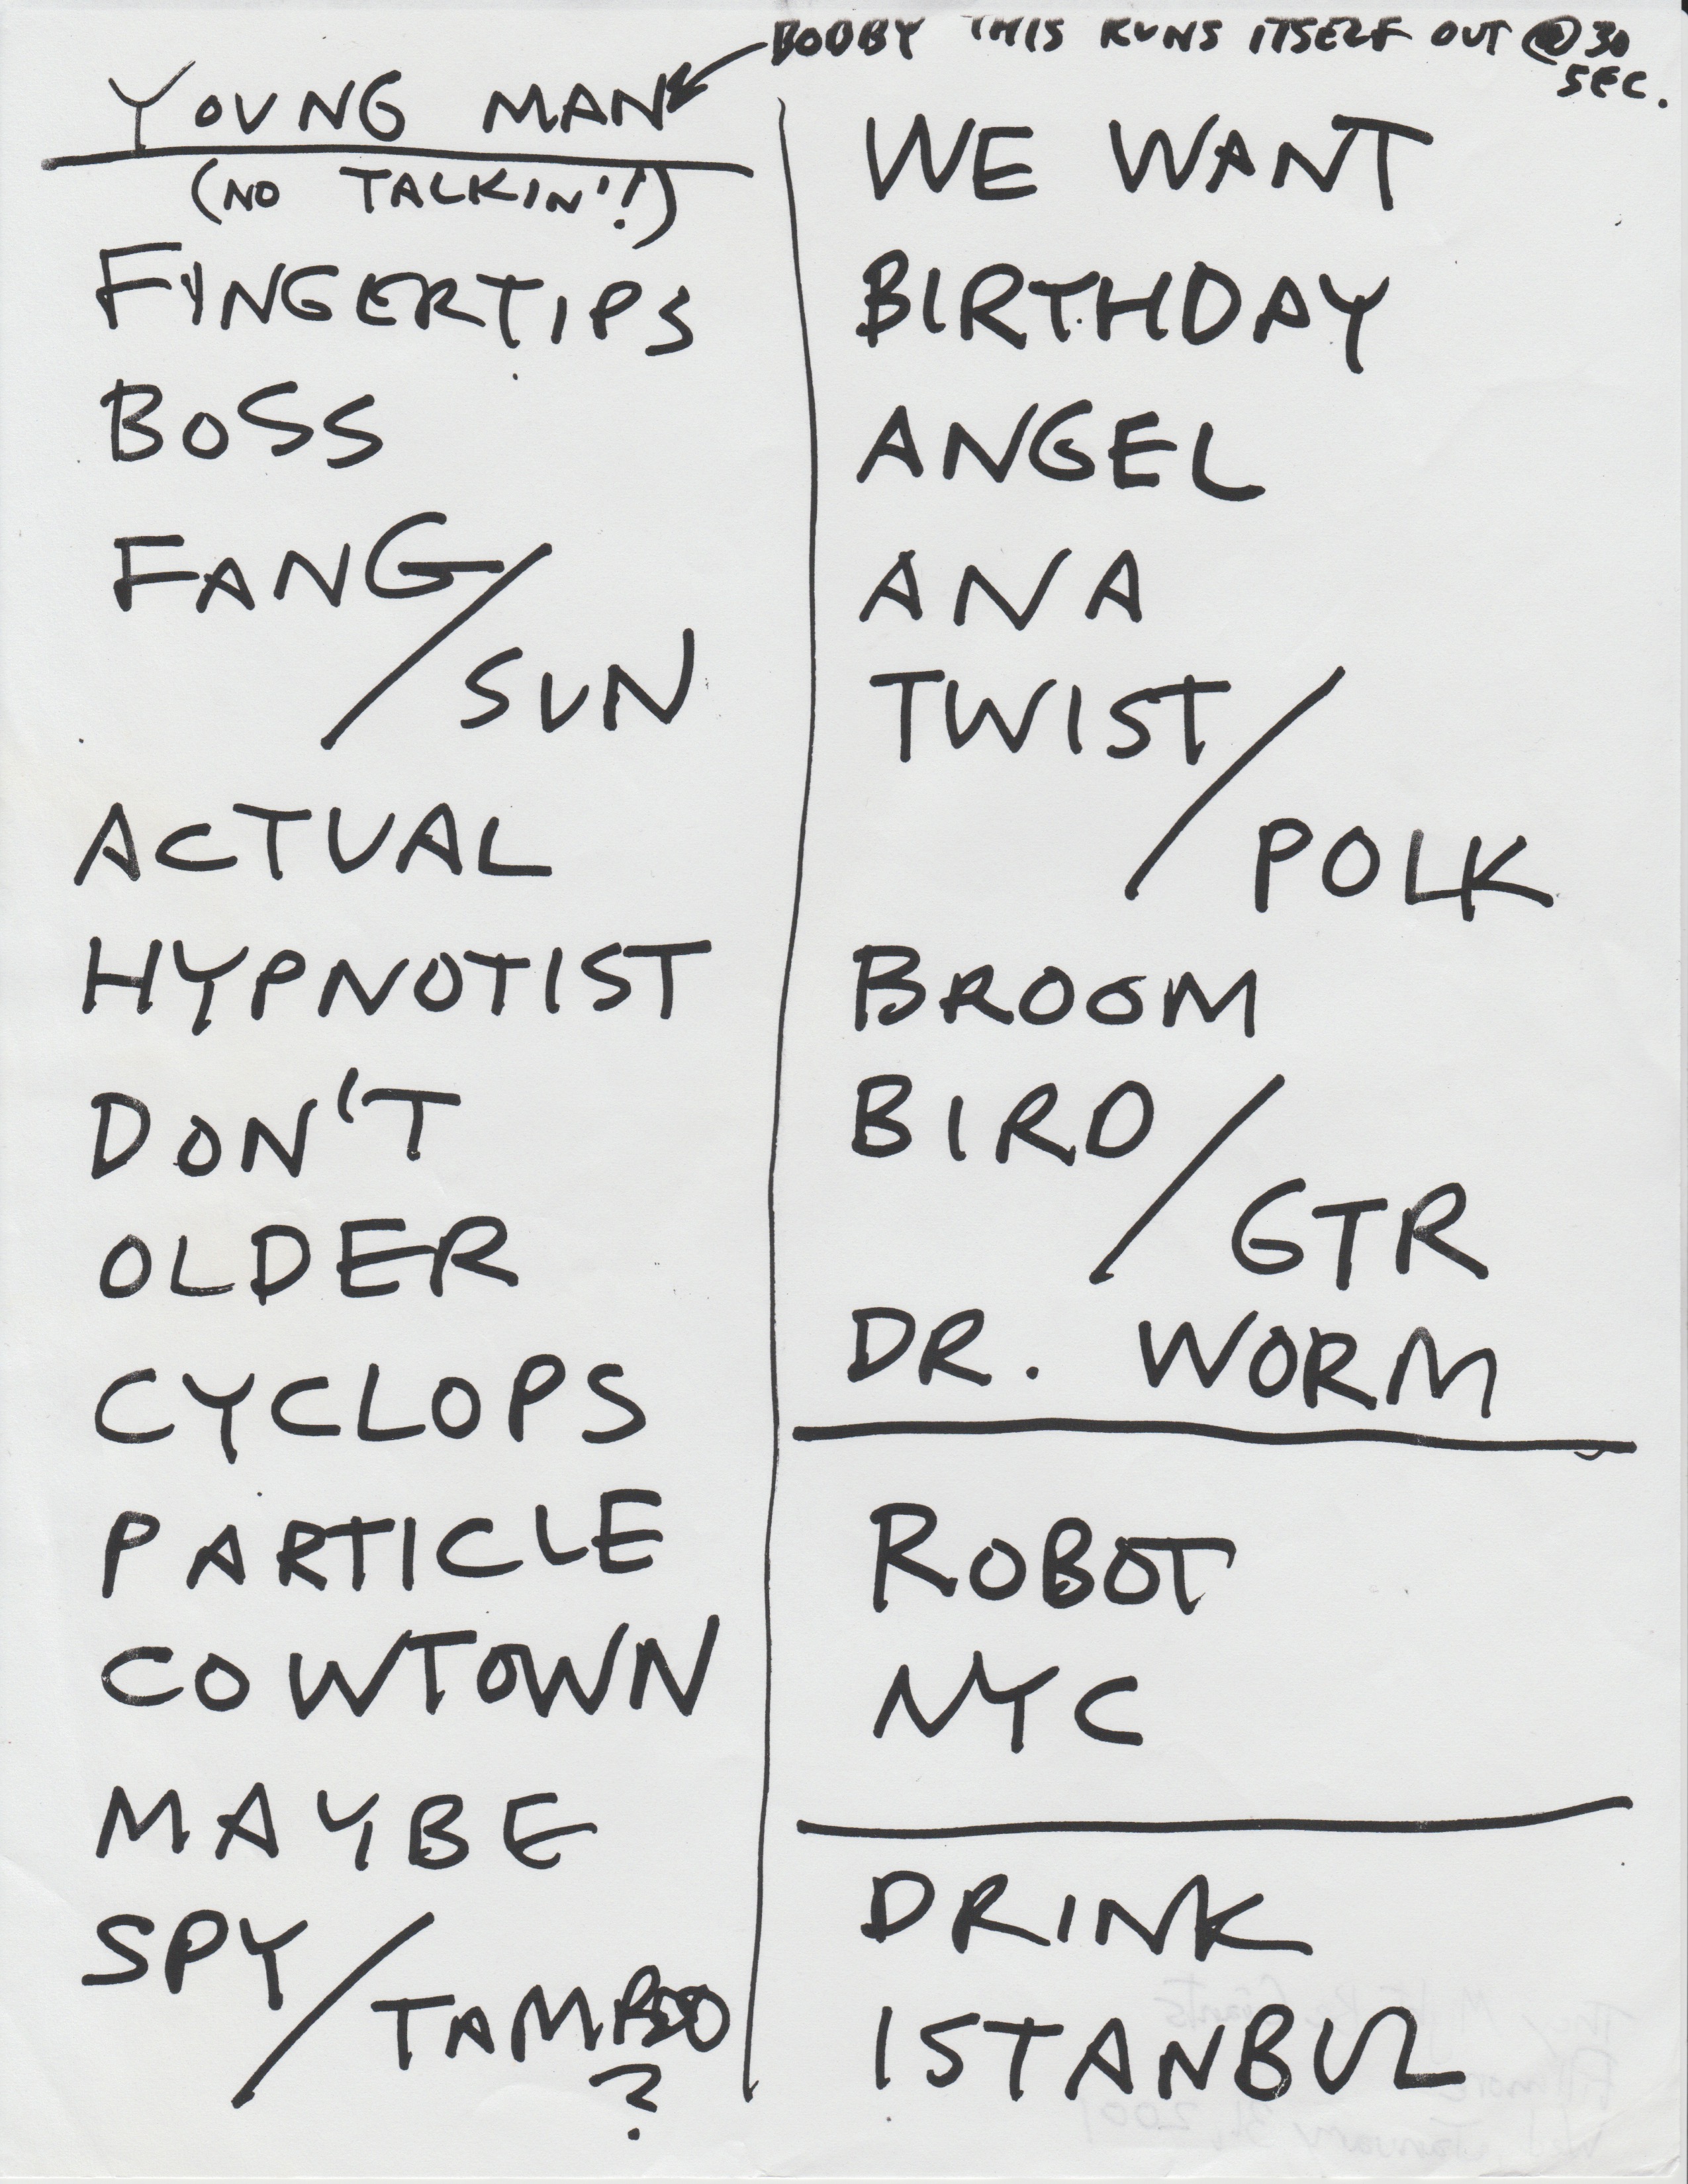 BOBBY THIS RUNS ITSELF OUT @ 30
SEC.
YOUNG MAN
(NO TALKIN'!)
FINGERTIPS
BOSS
FANG/
SUN
ACTUAL
HYPNOTIST
DON'T
OLDER
CYCLOPS
PARTICLE
COWTOWN
MAYBE
SPY/
TAMBO
?
WE WANT
BIRTHDAY
ANGEL
ANA
TWIST/
POLK
BROOM
BIRD/
GTR
DR. WORM
ROBOT
NYC
DRINK
ISTANBUL
They Might Be Giants
Fillmore
Wed January 31, 2001